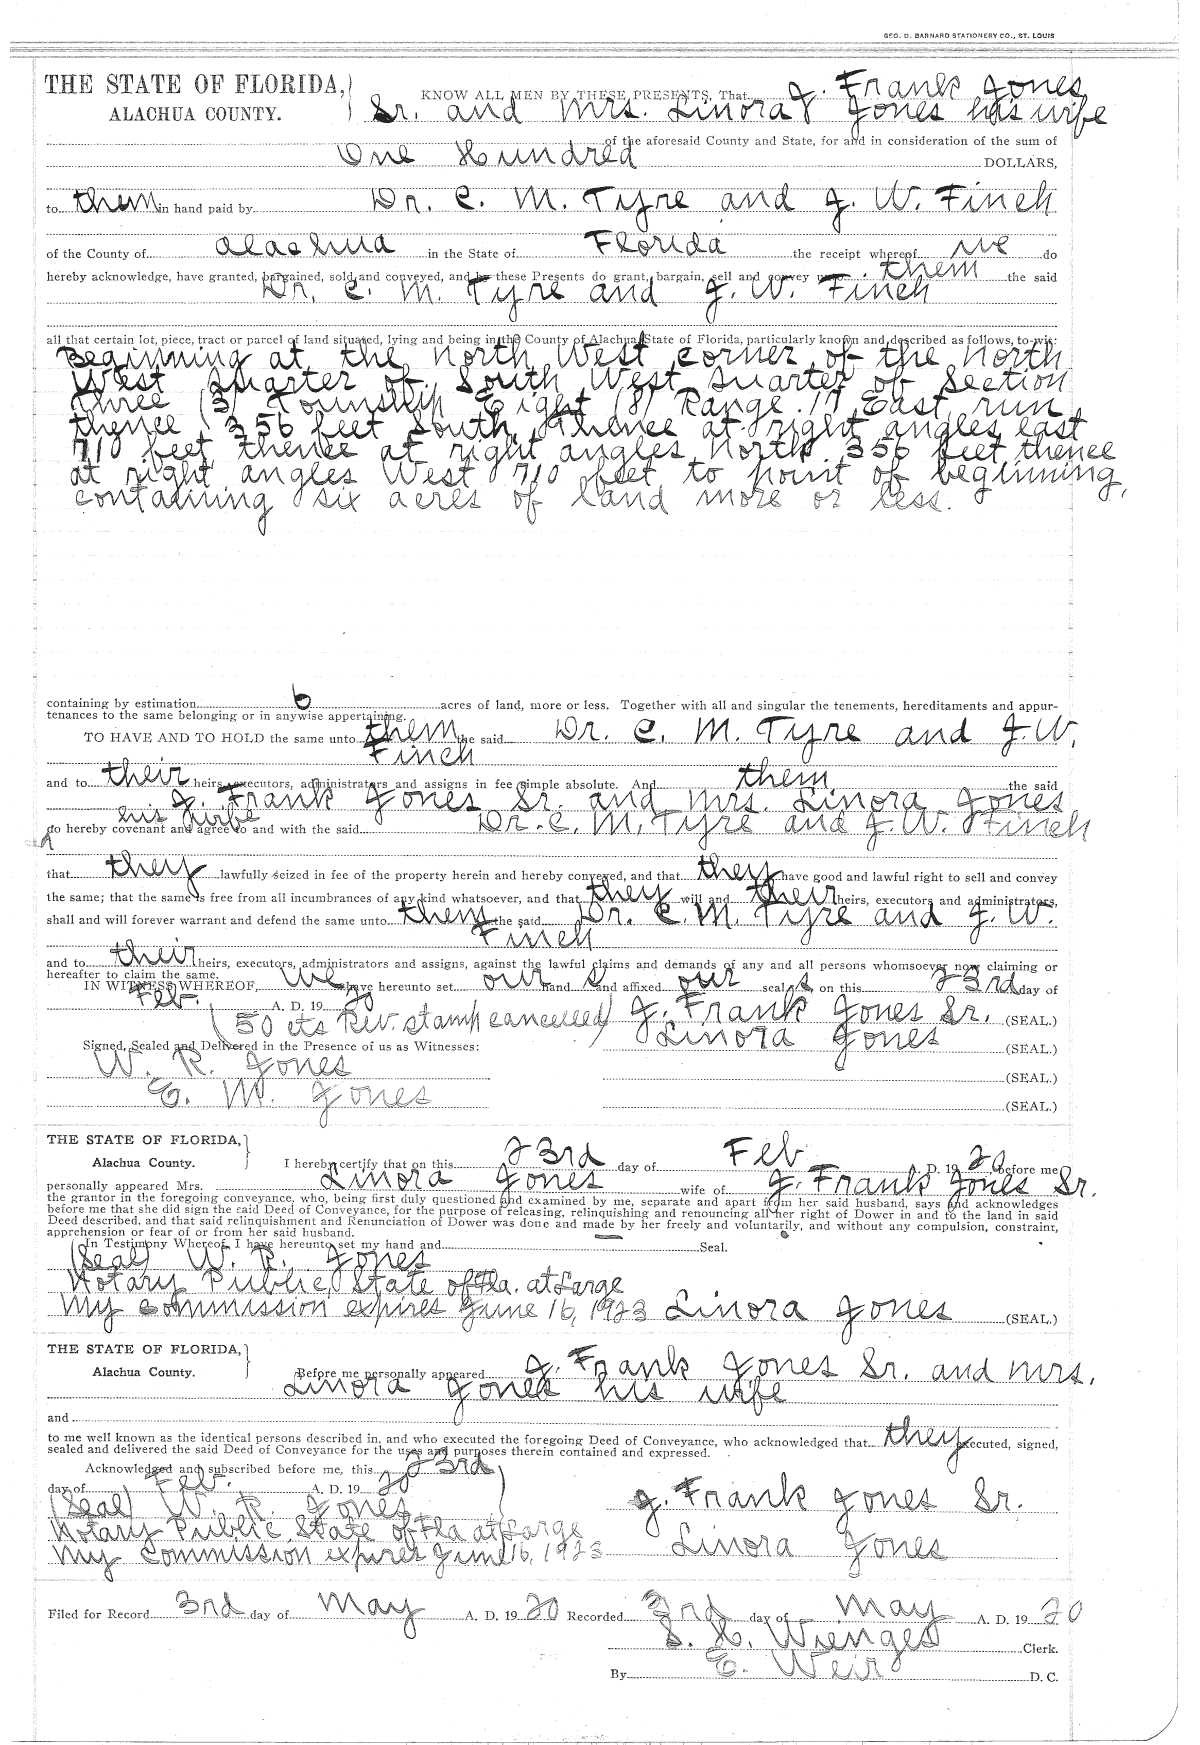 GEO. D. BARNARD STATIONERY CO., ST. LOUIS
THE STATE OF FLORIDA,
ALACHUA COUNTY.
KNOW ALL MEN BY THESE PRESENTS, That J. Frank Jones
Sr. and Mrs. Linora J Jones his wife
of the aforesaid County and State, for and in consideration of the sum of
One Hundred DOLLARS,
to them in hand paid by Dr. C. M. Tyre and J. W. Finch
of the County of Alachua in the State of Florida the receipt whereof we do
hereby acknowledge, have granted, bargained, sold and conveyed, and by these Presents do grant, bargain, sell and convey unto them the said
Dr. C. M. Tyre and J. W. Finch
all that certain lot, piece, tract or parcel of land situated, lying and being in the County of Alachua State of Florida, particularly known and described as follows, to-wit:
Beginning at the North West corner of the North
West Quarter of South West Quarter of Section
three (3) Township Eight (8) Range 17 East, run
thence 356 feet South, thence at right angles east
710 feet thence at right angles North 356 feet thence
at right angles West 710 feet to point of beginning,
containing six acres of land more or less.
containing by estimation 6 acres of land, more or less. Together with all and singular the tenements, hereditaments and appur-
tenances to the same belonging or in anywise appertaining.
TO HAVE AND TO HOLD the same unto them the said Dr. C. M. Tyre and J. W.
Finch
and to their heirs, executors, administrators and assigns in fee simple absolute. And them the said
J. Frank Jones Sr. and Mrs. Linora Jones
his wife
do hereby covenant and agree to and with the said Dr. C. M. Tyre and J. W. Finch
that they lawfully seized in fee of the property herein and hereby conveyed, and that they have good and lawful right to sell and convey
the same; that the same is free from all incumbrances of any kind whatsoever, and that they will and their heirs, executors and administrators,
shall and will forever warrant and defend the same unto them the said Dr. C. M. Tyre and J. W.
Finch
and to their heirs, executors, administrators and assigns, against the lawful claims and demands of any and all persons whomsoever now claiming or
hereafter to claim the same.
IN WITNESS WHEREOF, we have hereunto set our hand s and affixed our seal s on this 23rd day of
Feb. A. D. 19 20
(50 cts Rev. stamp cancelled) J. Frank Jones Sr. (SEAL.)
Linora Jones (SEAL.)
Signed, Sealed and Delivered in the Presence of us as Witnesses:
W. R. Jones (SEAL.)
E. M. Jones (SEAL.)
THE STATE OF FLORIDA,
Alachua County.
I hereby certify that on this 23rd day of Feb D. 19 20 before me
personally appeared Mrs. Linora Jones wife of J. Frank Jones Sr.
the grantor in the foregoing conveyance, who, being first duly questioned and examined by me, separate and apart from her said husband, says and acknowledges
before me that she did sign the said Deed of Conveyance, for the purpose of releasing, relinquishing and renouncing all her right of Dower in and to the land in said
Deed described, and that said relinquishment and Renunciation of Dower was done and made by her freely and voluntarily, and without any compulsion, constraint,
apprehension or fear of or from her said husband.
In Testimony Whereof, I have hereunto set my hand and Seal.
(Seal) W. R. Jones
Notary Public, State of Fla. at Large
My Commission expires June 16, 1923 Linora Jones (SEAL.)
THE STATE OF FLORIDA,
Alachua County.
Before me personally appeared J. Frank Jones Sr. and Mrs.
Linora Jones his wife
and
to me well known as the identical persons described in, and who executed the foregoing Deed of Conveyance, who acknowledged that they executed, signed,
sealed and delivered the said Deed of Conveyance for the uses and purposes therein contained and expressed.
Acknowledged and subscribed before me, this 23rd
day of Feb. A. D. 19 20
(Seal) W. R. Jones J. Frank Jones Sr.
Notary Public State of Fla at Large
My Commission expires June 16, 1923 Linora Jones
Filed for Record 3rd day of May A. D. 19 20 Recorded 3rd day of May A. D. 19 20
S. H. Wienges Clerk.
By E. Weir D. C.